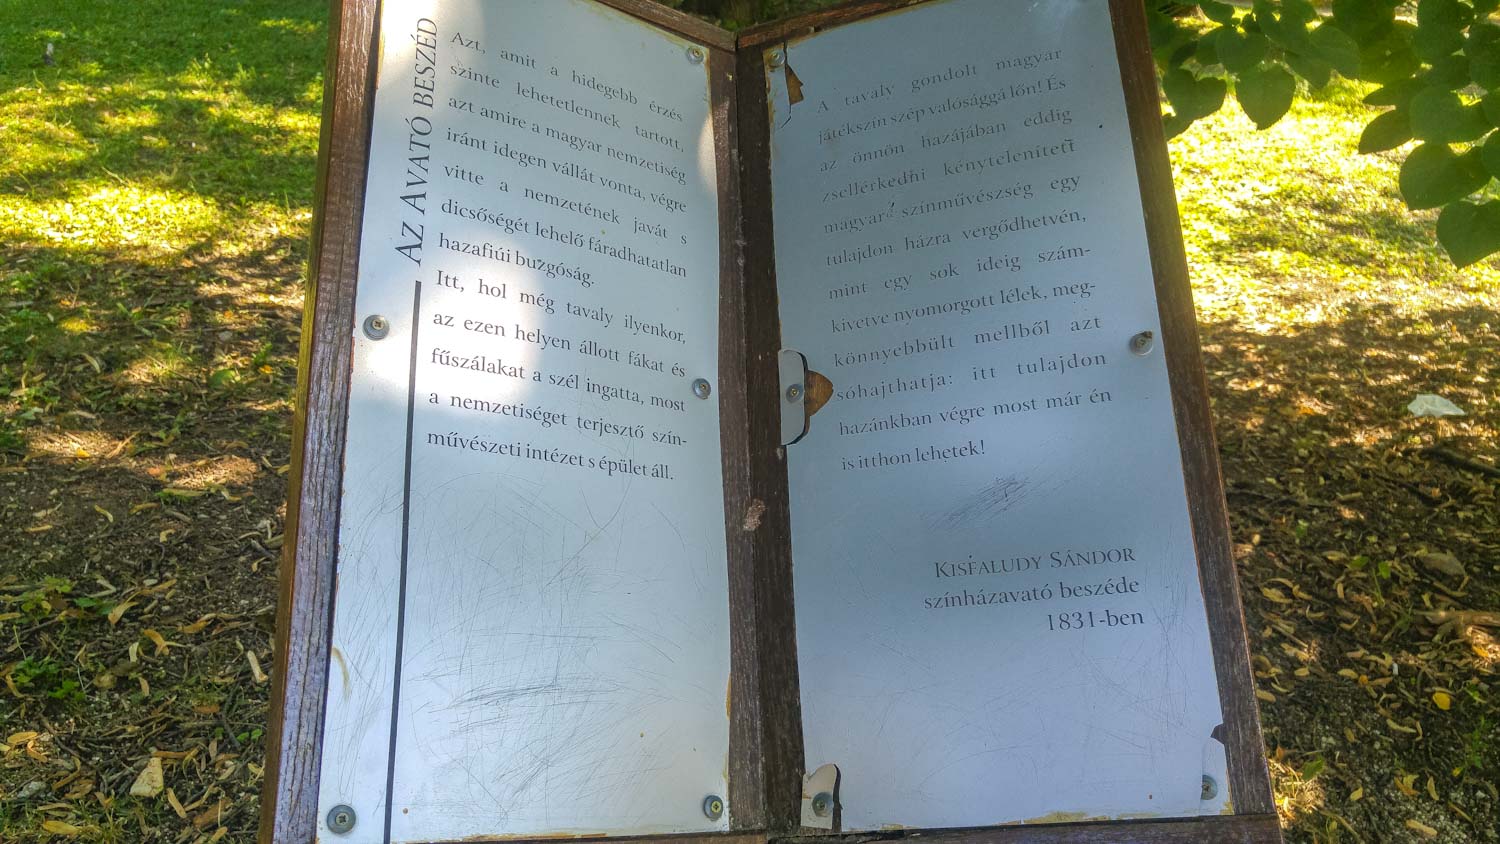 AZ AVATÓ BESZÉD
Azt, amit a hidegebb érzés
szinte lehetetlennek tartott,
azt amire a magyar nemzetiség
iránt idegen vállát vonta, végre
vitte a nemzetének javát s
dicsőségét lehelő fáradhatatlan
hazafiúi buzgóság.
Itt, hol még tavaly ilyenkor,
az ezen helyen állott fákat és
fűszálakat a szél ingatta, most
a nemzetiséget terjesztő szín-
művészeti intézet s épület áll.
A tavaly gondolt magyar
játékszín szép valósággá lőn! És
az önnön hazájában eddig
zsellérkedni kénytelenített
magyar színművészség egy
tulajdon házra vergődhetvén,
mint egy sok ideig szám-
kivetve nyomorgott lélek, meg-
könnyebbült mellből azt
sóhajthatja: itt tulajdon
hazánkban végre most már én
is itthon lehetek!
KISFALUDY SÁNDOR
színházavató beszéde
1831-ben